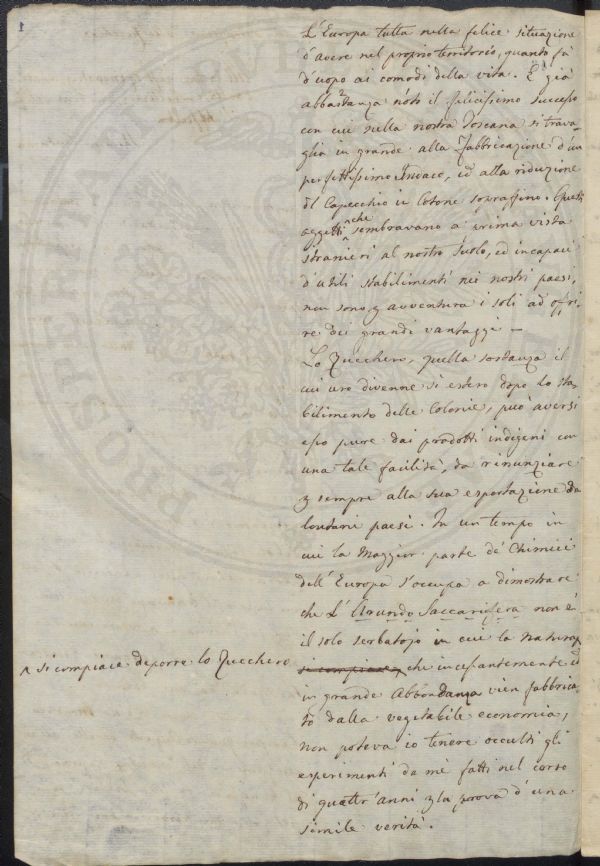 1
L'Europa tutta nella felice situazione
d'avere nel proprio territorio, quanto fà
d'uopo ai comodi della vita. E' già
abbastanza noto il felicissimo successo
con cui nella nostra Toscana si trava-
glia in grande alla Fabbricazione d'un
perfettissimo Indaco, ed alla riduzione
del Capecchio in Cotone sopraffino. Questi
oggetti che sembravano a prima vista
stranieri al nostro Suolo, ed incapaci
d'utili stabilimenti nei nostri paesi,
non sono, p avventura i soli ad offri-
re dei grandi vantaggi —
Lo Zucchero, quella sostanza il
cui uso divenne sì esteso dopo lo sta-
bilimento delle Colonie, può aversi
esso pure dai prodotti indigeni con
una tale facilità, da rinunziare
p sempre alla sua esportazione da
lontani paesi. In un tempo in
cui la Maggior parte de' Chimici
dell'Europa s'occupa a dimostrare
che L'Arundo Saccarifera non è
il solo serbatojo in cui la natura
^ si compiace deporre lo Zucchero
si compiace, che incessantemente ed
in grande Abbondanza vien fabbrica-
to dalla vegetabile economia,
non poteva io tenere occulti gli
esperimenti da mè fatti nel corso
di quattr'anni p la prova d'una
simile verità.